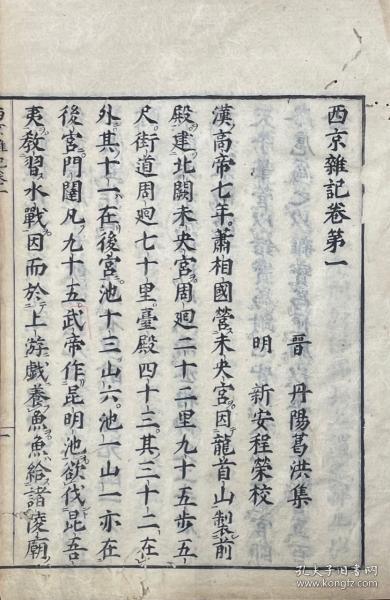 西京雜記卷第一
晉 丹陽葛洪集
明 新安程榮校
漢高帝七年蕭相國營未央宮因龍首山製前
殿建北闕未央宮周迴二十二里九十五步五
尺街道周迴七十里臺殿四十三其三十二在
外其十一在後宮池十三山六池一山一亦在
後宮門闥凡九十五武帝作昆明池欲伐昆吾
夷教習水戰因而於上游戲養魚魚給諸陵廟
孔夫子旧书网